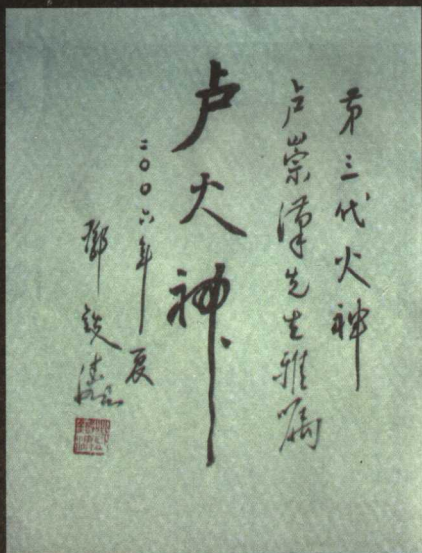 第三代火神
卢崇漢先生雅嘱
卢火神
二〇〇六年夏
鄧铁涛